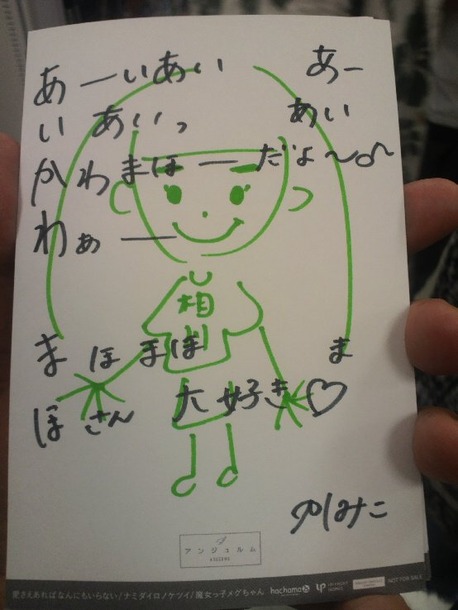 あーいあい　あー
いあいっ　あい
かわまほーだよ〜♂
わぁー
相
まほまほ　ま
ほさん　大好き♡
アンジュルム
愛さえあればなんにもいらない/ナミダイロノケツイ/魔女っ子メグちゃん hachama UP NOT FOR SALE